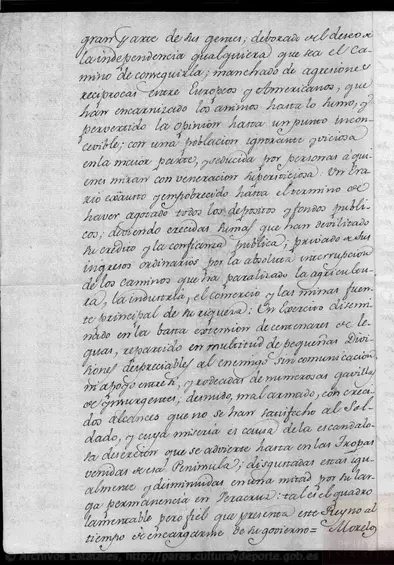 gran parte de sus genios; deborado del deseo a
la independencia qualquiera que sea el ca-
mino de conseguirla; manchado de agresiones
reciprocas entre Europeos y Americanos, que
han encarnizado los animos hasta lo sumo, y
pervertido la opinion hasta un punto incon-
cevible; con una poblacion ignorante y viciosa
en la maior parte, y seducida por personas a qui-
enes miran con veneracion supersticiosa. Un Era-
rio exausto y empobrecido hasta el termino de
haver agotado todos los depositos y fondos publi-
cos; deviendo crecidas sumas que han devilitado
su credito y la confianza publica; privado de sus
ingresos ordinarios por la absoluta interrupcion
de los caminos que ha paralizado la agricultu-
ra, la industria, el comercio y las minas fuen-
te principal de su riqueza: Un Exercito disemi-
nado en la basta extension de centenares de le-
guas, repartido en multitud de pequeñas Divi-
siones despreciables al enemigo sin comunicacion,
ni apoyo entre si, y rodeadas de numerosas gavillas
de ynsurgentes; desnudo, mal armado, con creci-
dos alcances que no se han satisfecho al Sol-
dado, y cuya miseria es causa de la escandalo-
sa desercion que se advierte hasta en las Tropas
venidas de esa Peninsula; disgustadas estas igu-
almente y disminuidas en una mitad por su lar-
ga permanencia en Veracruz: tal es el quadro
lamentable pero fiel que presenta este Reyno al
tiempo de encargarme de su govierno= Morelos
Archivos Estatales, http://pares.culturaydeporte.gob.es